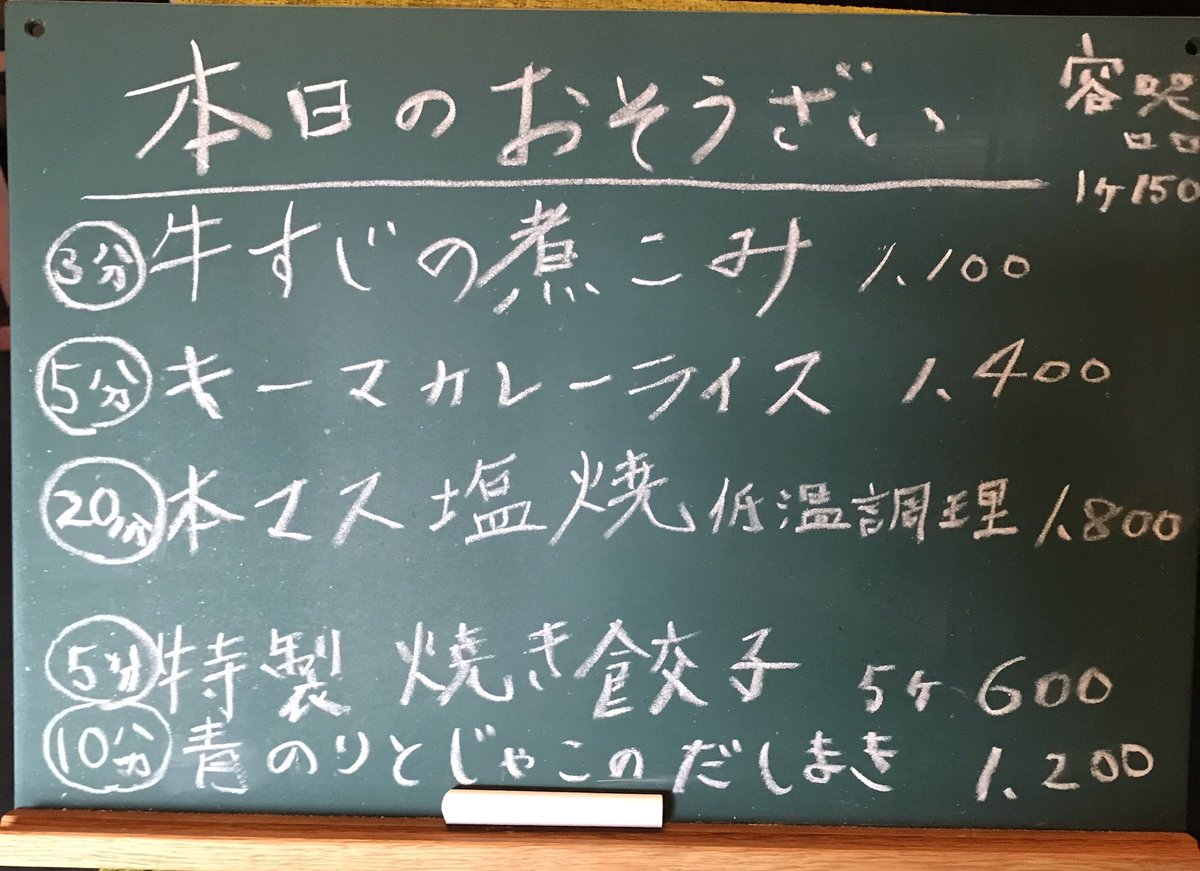 本日のおそうざい
容器
1ケ150
3分 牛すじの煮こみ 1,100
5分 キーマカレーライス 1,400
20分 本マス塩焼 低温調理 1,800
5分 特製 焼き餃子 5ケ 600
10分 青のりとじゃこのだしまき 1,200